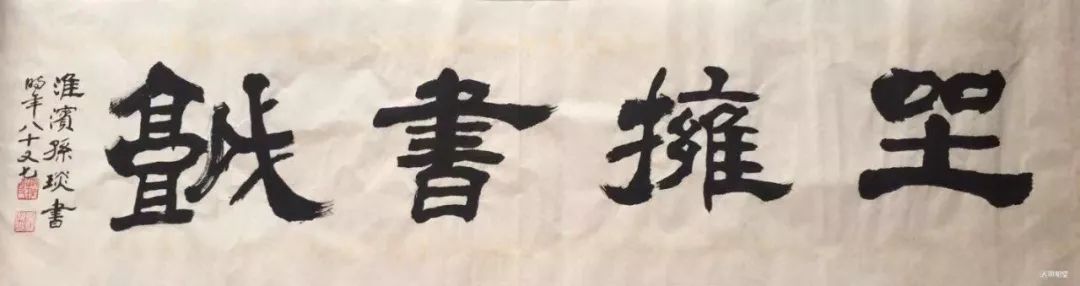 坐擁書城
淮濱孫琰書
時年八十又七